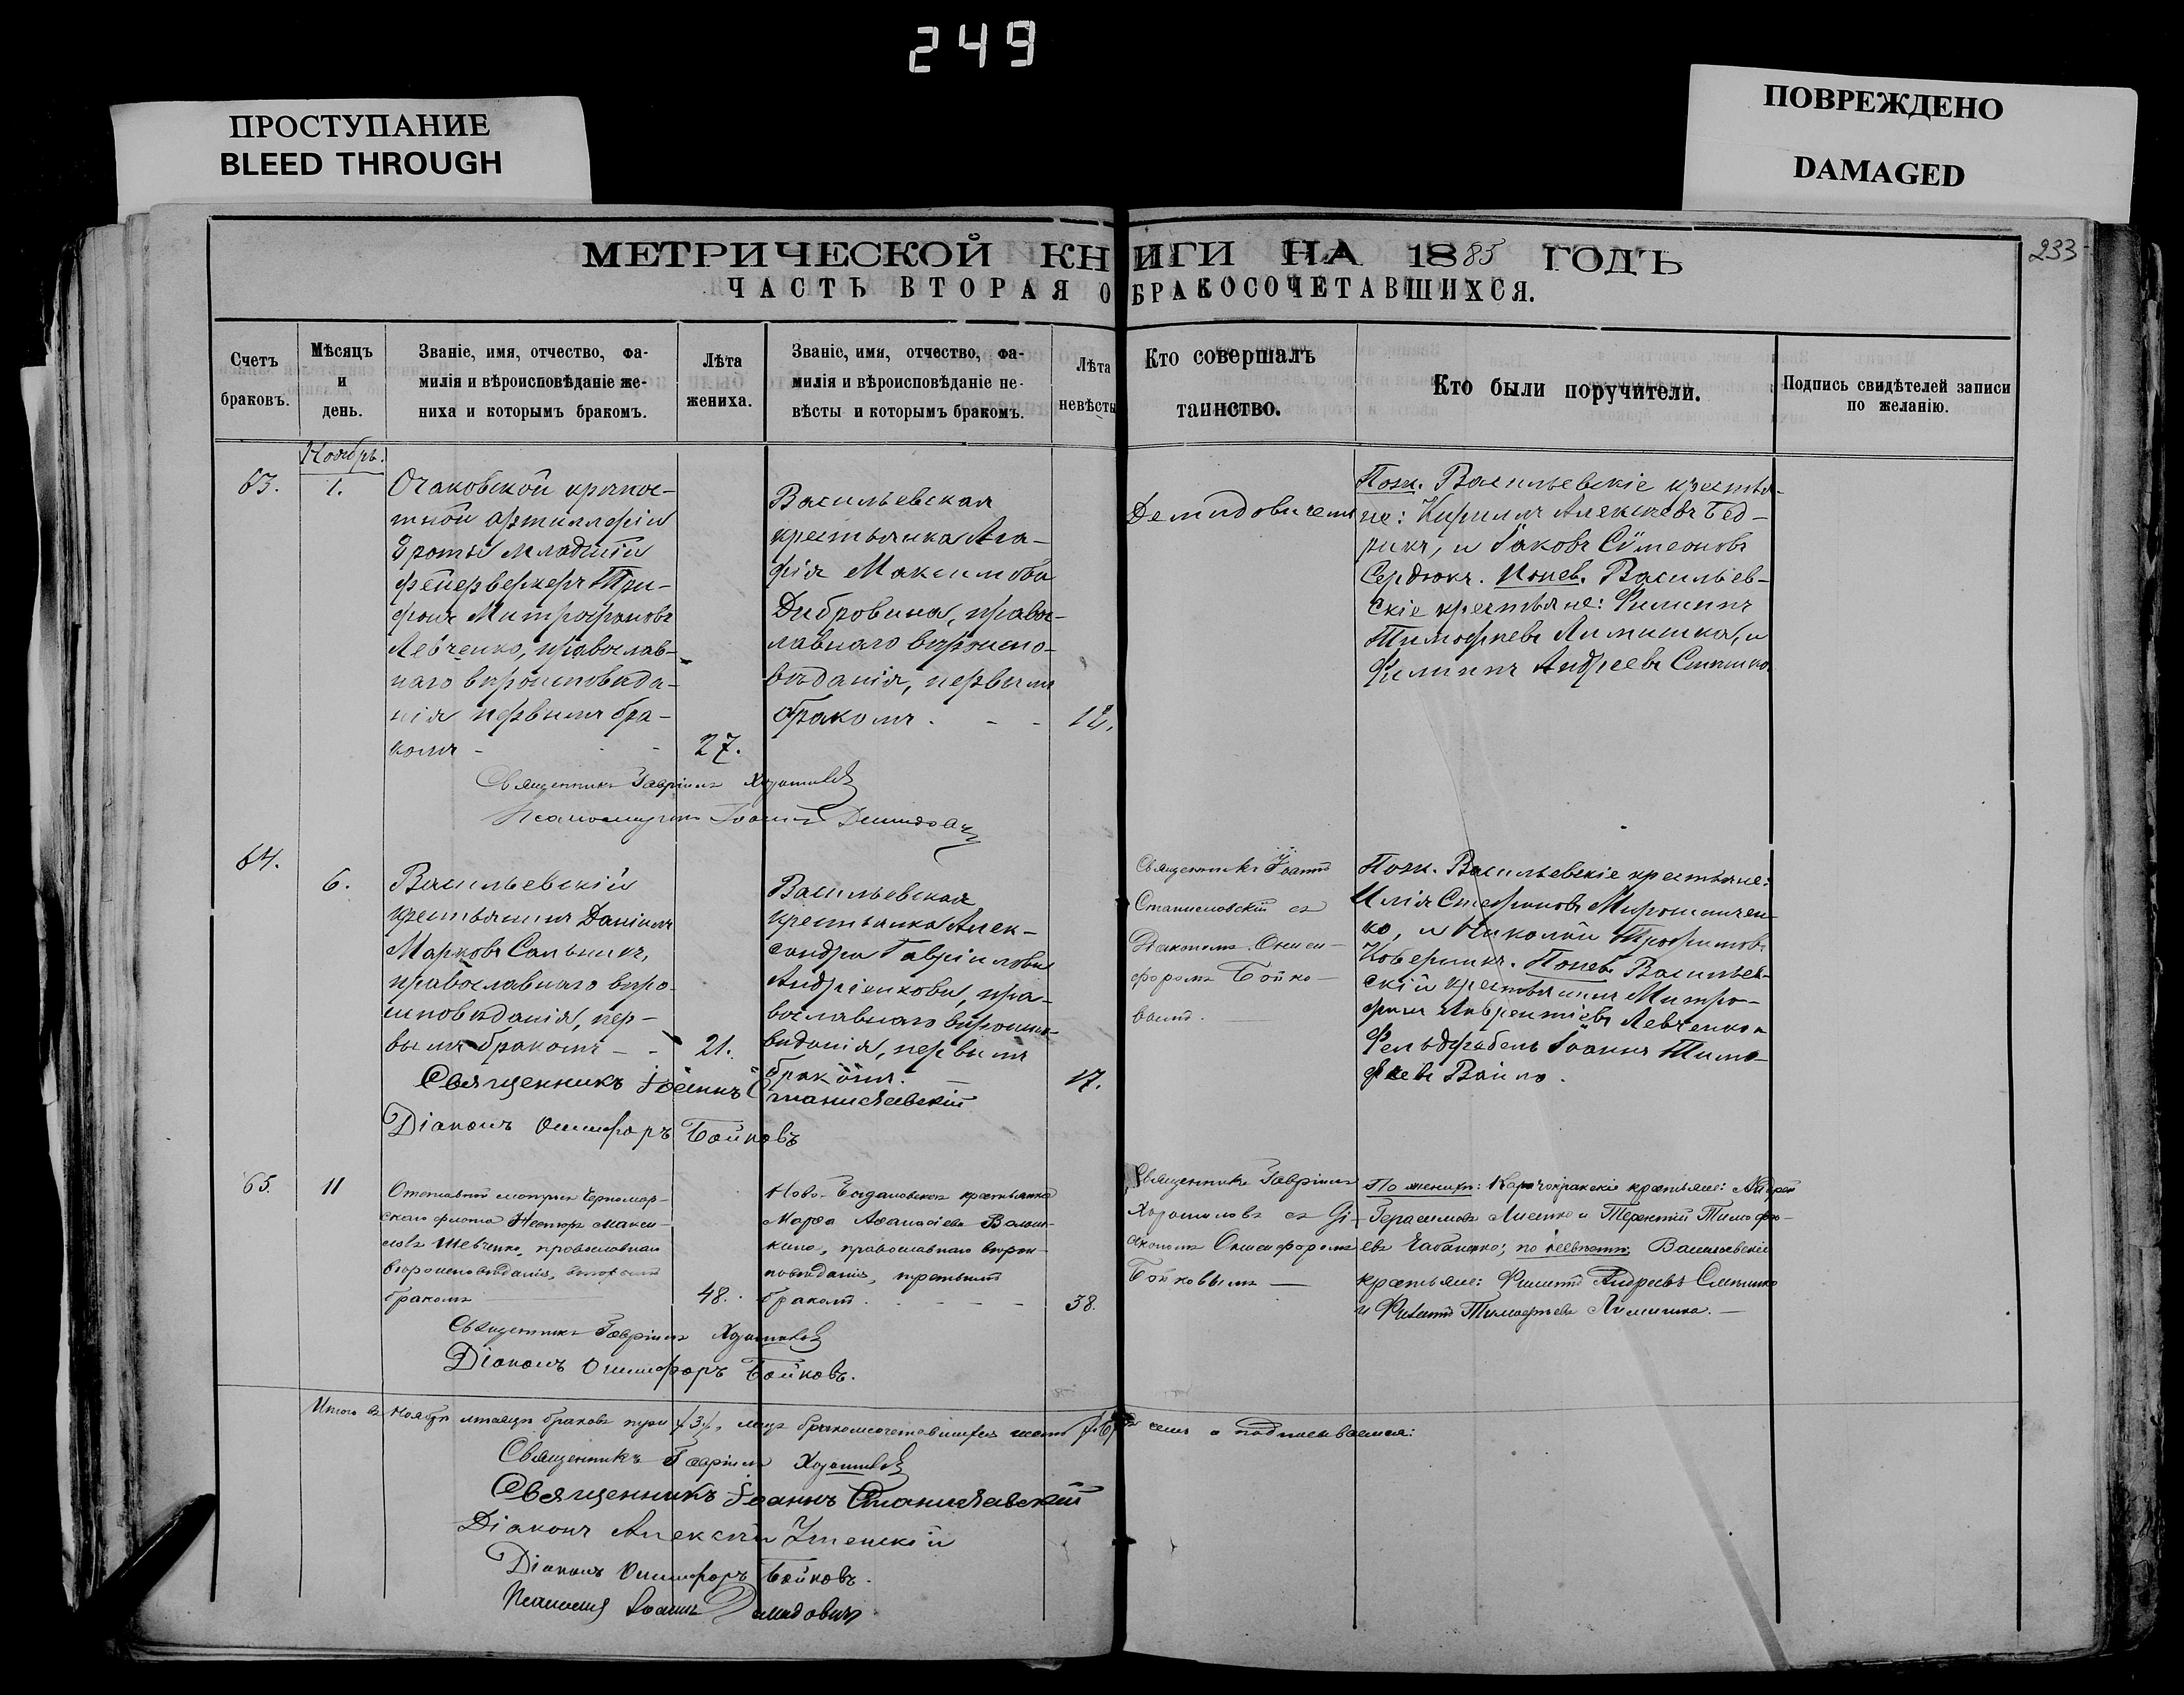 249
ПРОСТУПАНИЕ
BLEED THROUGH
ПОВРЕЖДЕНО
DAMAGED
233
МЕТРИЧЕСКОЙ КНИГИ НА 1885 ГОДЪ
ЧАСТЬ ВТОРАЯ О БРАКОСОЧЕТАВШИХСЯ.
Счетъ
браковъ.
Мѣсяцъ
и
день.
Званіе, имя, отчество, фа-
милія и вѣроисповѣданіе же-
ниха и которымъ бракомъ.
Лѣта
жениха.
Званіе, имя, отчество, фа-
милія и вѣроисповѣданіе не-
вѣсты и которымъ бракомъ.
Лѣта
невѣсты
Кто совершалъ
таинство.
Кто были поручители.
Подпись свидѣтелей записи
по желанію.
Ноябрь.
63.
1.
Очаковской крѣпос-
тной артиллеріи
роты младшій
фейерверкеръ Три-
фонъ Митрофановъ
Левченко, православ-
наго вѣроисповѣда-
нія первымъ бра-
комъ -
27.
Васильевская
крестьянка Ага-
фія Максимова
Дибровина, правос-
лавнаго вѣроиспо-
вѣданія, первымъ
бракомъ. - -
Демидовичемъ
Пож. Васильевскіе крестья-
не: Кириллъ Алексѣевъ Бед-
рикъ, и Іаковъ Сѵмеоновъ
Сердюкъ. Понев. Васильев-
скіе крестьяне: Филиппъ
Тимофѣевъ Лимишка, и
Филиппъ Андреевъ
Священникъ Гавріилъ
Псаломщикъ Іоаннъ Демидовичъ
64.
6.
Васильевскій
крестьянинъ Даніилъ
Марковъ Сальникъ,
православнаго вѣро-
исповѣданія, пер-
вымъ бракомъ - -
21.
Васильевская
крестьянка Алек-
сандра Гавріилова
Андріенкова, пра-
вославнаго вѣроиспо-
вѣданія, первымъ
бракомъ.
17.
Священникъ Іоаннъ
Станиславскій съ
Діакономъ Ониси-
форомъ Бойко-
вымъ.
Пож. Васильевскіе крестьяне:
Илія Стефановъ Мирошничен-
ко, и Николай Трофимовъ
Коверникъ. Понев. Васильев-
скій крестьянинъ Митро-
фанъ Лаврентіевъ Левченко и
Фельдфебель Іоаннъ Тимо-
фѣевъ Вайло.
Священникъ Іоаннъ Станиславскій
Діаконъ Онисифоръ Бойковъ
65.
11
Отставной матросъ Черномор-
скаго флота Несторъ Макси-
мовъ Шевченко, православнаго
вѣроисповѣданія, вторымъ
бракомъ
48.
Ново-Богдановская крестьянка
Марѳа Аѳанасіева Волош-
кина, православнаго вѣроис-
повѣданія, третьимъ
бракомъ. - - -
38.
Священникъ Гавріилъ
Хорошиловъ съ Ді-
акономъ Онисифоромъ
Бойковымъ —
По женихѣ: Карачокракскіе крестьяне: Андрей
Герасимовъ Лисенко и Терентій Тимофѣ-
евъ Чабаненко; по невѣстѣ: Васильевскіе
крестьяне: Филиппъ Андреевъ
и Филиппъ Тимофѣевъ Лимишка. —
Священникъ Гавріилъ
Діаконъ Онисифоръ Бойковъ.
Итого въ Ноябрѣ мѣсяцѣ браковъ три /3/, лицъ бракосочетавшихся шесть /6/ въ семъ и подписываемся:
Священникъ Гавріилъ
Священникъ Іоаннъ Станиславскій
Діаконъ Алексѣй
Діаконъ Онисифоръ Бойковъ.
Іоаннъ Демидовичъ